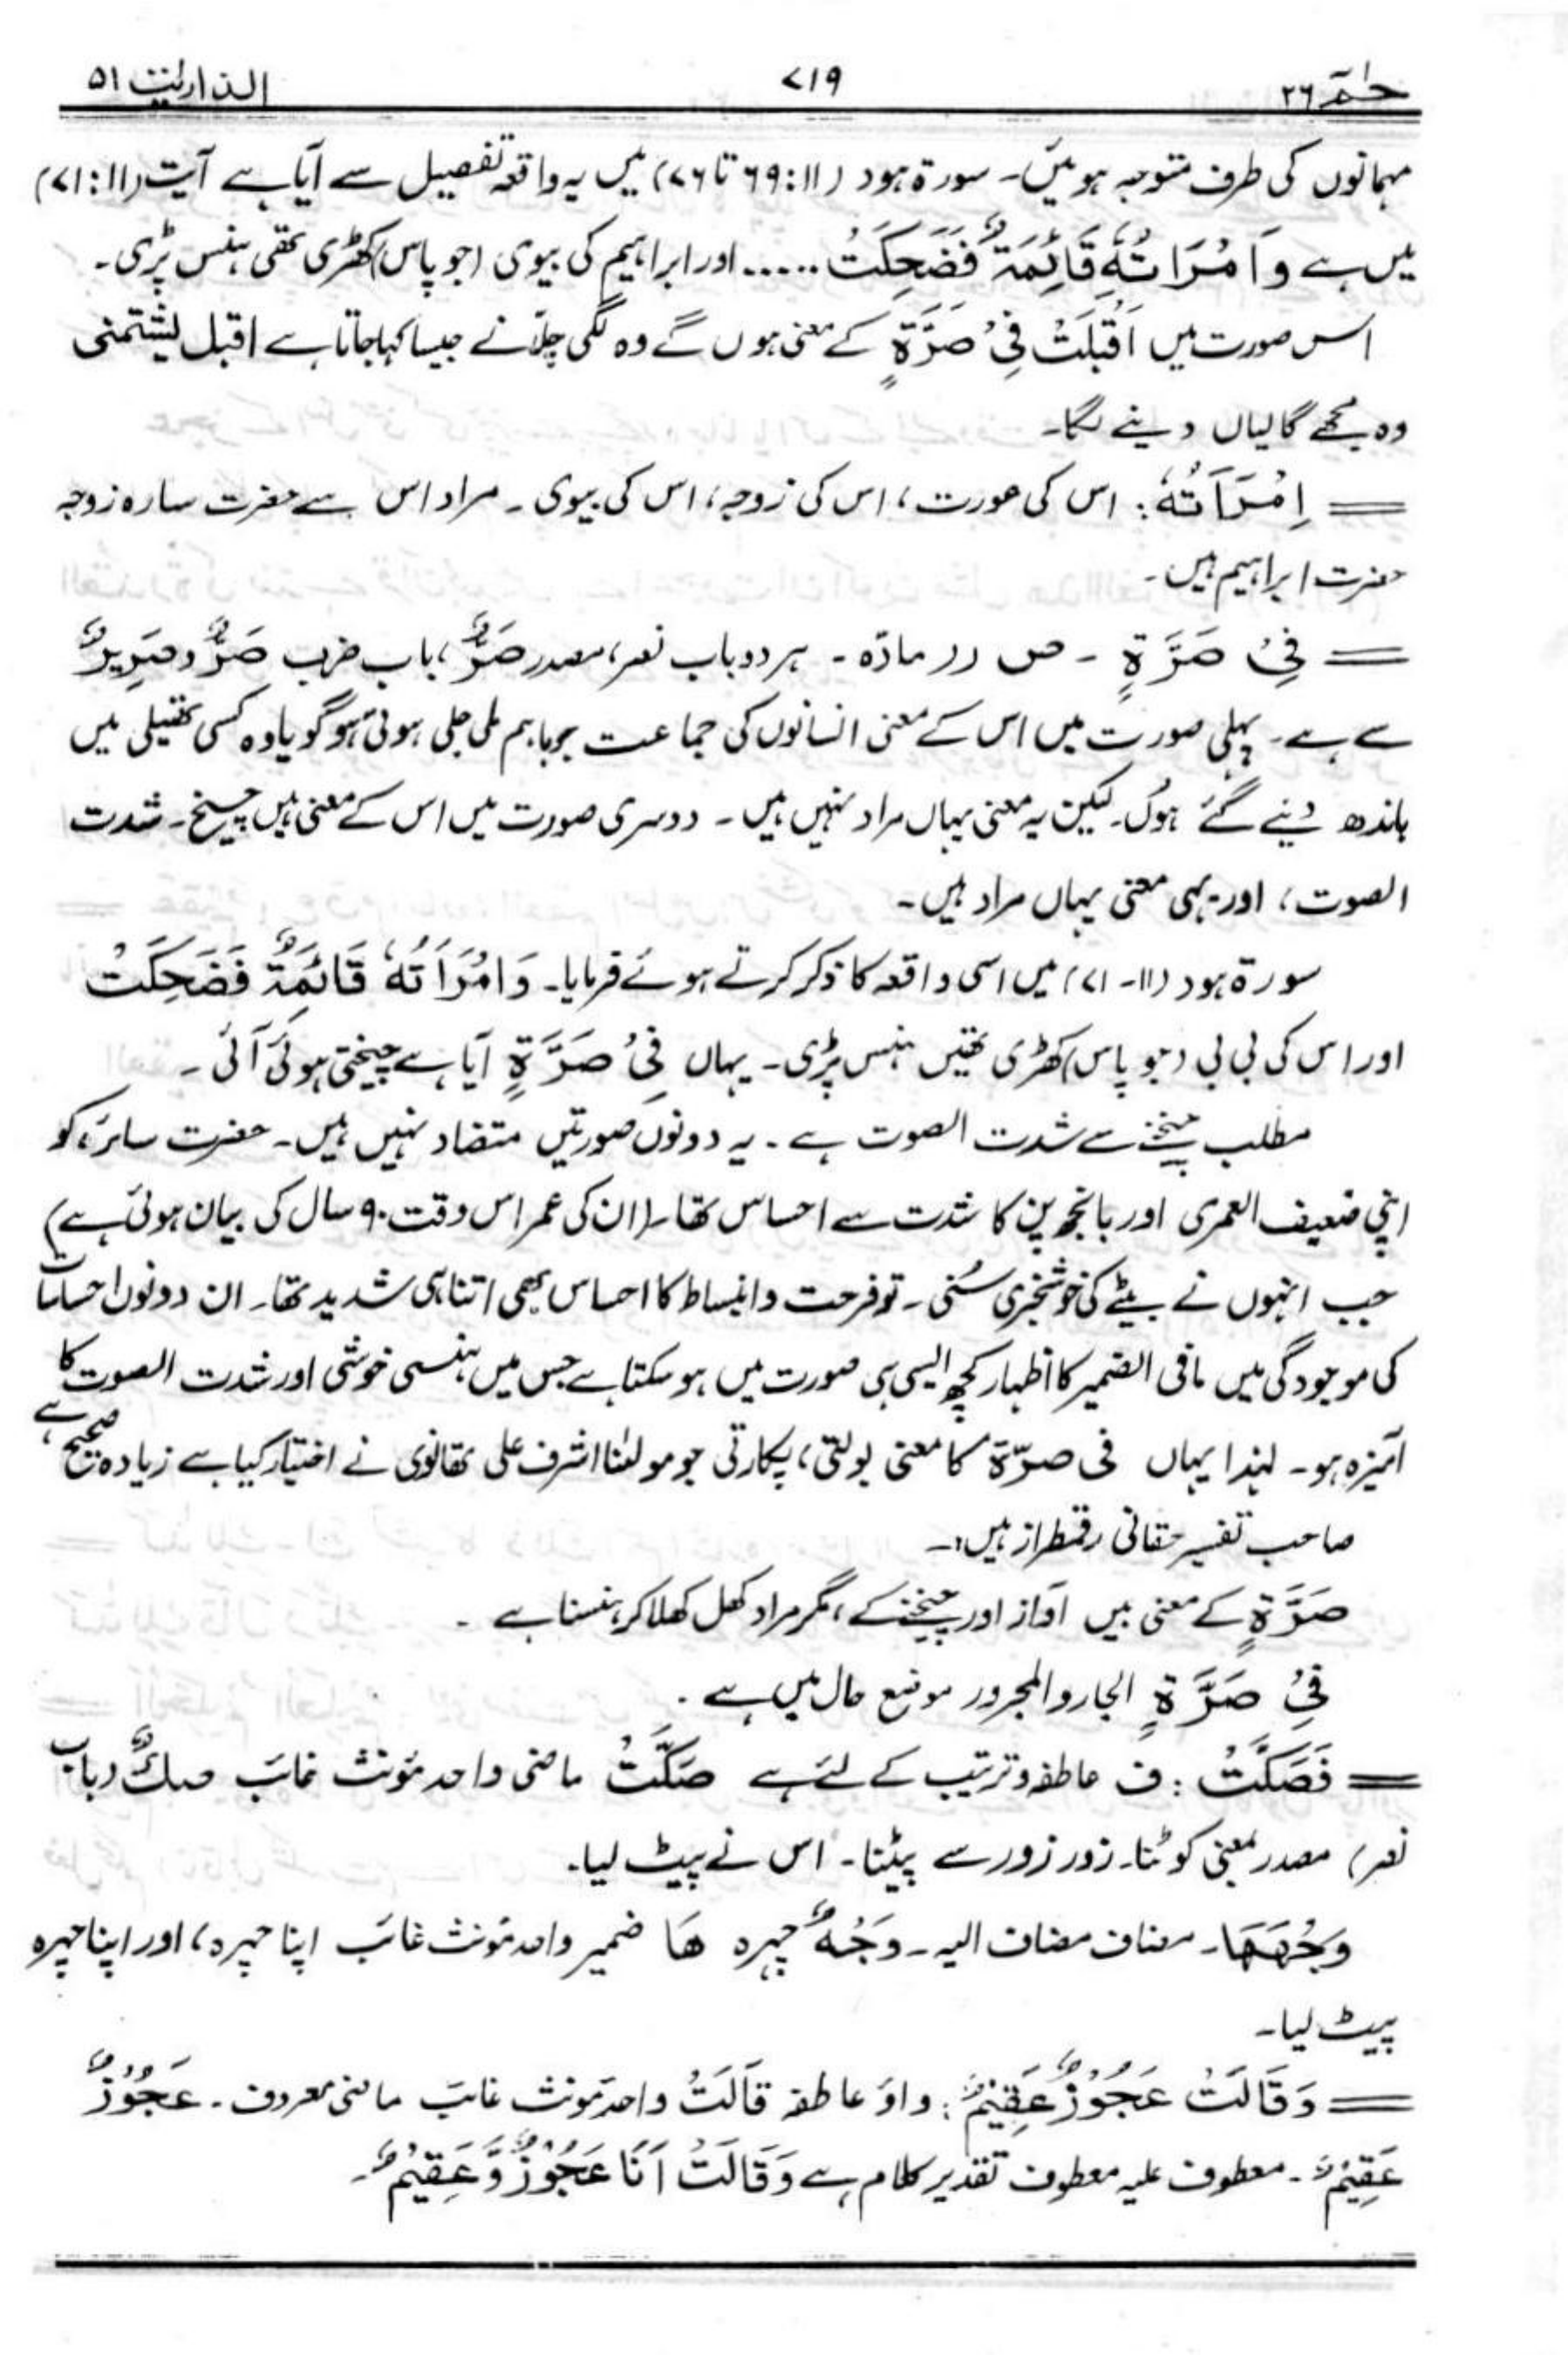 حٰمٓ ۲۶ ۷۱۹ الذاریٰت ۵۱
مہمانوں کی طرف متوجہ ہوئیں۔ سورۃ ہود (۱۱: ۶۹ تا ۷۶) میں یہ واقعہ تفصیل سے آیا ہے آیت (۱۱: ۷۱)
میں ہے وَامْرَاَتُہٗ قَآئِمَۃٌ فَضَحِکَتْ ...... اور ابراہیم کی بیوی (جو پاس) کھڑی تھی ہنس پڑی۔
اس صورت میں اَقْبَلَتْ فِیْ صَرَّۃٍ کے معنی ہوں گے وہ لگی چلّانے جیسا کہا جاتا ہے اقبل یشتمنی
وہ مجھے گالیاں دینے لگا۔
= اِمْرَاَتُہٗ: اس کی عورت، اس کی زوجہ، اس کی بیوی۔ مراد اس سے حضرت سارہ زوجہ
حضرت ابراہیم ہیں۔
= فِیْ صَرَّۃٍ ۔ ص ر ر مادّہ۔ ہر دو باب نصر، مصدر صَرٌّ، باب ضرب صَرٌّ و صَرِیْرٌ
سے ہے۔ پہلی صورت میں اس کے معنی انسانوں کی جماعت جو باہم ملی جلی ہوئی ہو گویا وہ کسی تھیلی میں
باندھ دیئے گئے ہوں۔ لیکن یہ معنی یہاں مراد نہیں ہیں۔ دوسری صورت میں اس کے معنی ہیں چیخ۔ شدت
الصوت، اور یہی معنی یہاں مراد ہیں۔
سورۃ ہود (۱۱۔ ۷۱) میں اسی واقعہ کا ذکر کرتے ہوئے فرمایا۔ وَامْرَاَتُہٗ قَائِمَۃٌ فَضَحِکَتْ
اور اس کی بی بی (جو پاس) کھڑی تھیں ہنس پڑی۔ یہاں فِیْ صَرَّۃٍ آیا ہے چیختی ہوئی آئی ۔
مطلب چیخنے سے شدت الصوت ہے۔ یہ دونوں صورتیں متضاد نہیں ہیں۔ حضرت سارہؓ کو
اپنی ضعیف العمری اور بانجھ پن کا شدت سے احساس تھا۔ (ان کی عمر اس وقت ۹۰ سال کی بیان ہوئی ہے)
جب انہوں نے بیٹے کی خوشخبری سُنی۔ تو فرحت و انبساط کا احساس بھی اتنا ہی شدید تھا۔ ان دونوں احساسات
کی موجودگی میں مافی الضمیر کا اظہار کچھ ایسی ہی صورت میں ہو سکتا ہے جس میں ہنسی خوشی اور شدت الصوت کا
آمیزہ ہو۔ لہٰذا یہاں فی صرّۃ کا معنی بولتی، پکارتی جو مولٰنا اشرف علی تھانوی نے اختیار کیا ہے زیادہ صحیح ہے
صاحب تفسیر حقانی رقمطراز ہیں:۔
صَرَّۃٍ کے معنی ہیں آواز اور چیخنے کے، مگر مراد کھل کھلا کر ہنسنا ہے ۔
فِیْ صَرَّۃٍ الجار والمجرور موضع حال میں ہے ۔
= فَصَکَّتْ : ف عاطفہ و ترتیب کے لئے ہے صَکَّتْ ماضی واحد مؤنث غائب صکٌّ (باب
نصر) مصدر بمعنی کوٹنا۔ زور زور سے پیٹنا۔ اس نے پیٹ لیا۔
وَجْھَھَا۔ مضاف مضاف الیہ۔ وَجْہٌ چہرہ ھَا ضمیر واحد مؤنث غائب اپنا چہرہ، اور اپنا چہرہ
پیٹ لیا۔
= وَقَالَتْ عَجُوْزٌ عَقِیْمٌ : واؤ عاطفہ قَالَتْ واحد مؤنث غائب ماضی معروف۔ عَجُوْزٌ
عَقِیْمٌ ۔ معطوف علیہ معطوف تقدیر کلام ہے وَقَالَتْ اَنَا عَجُوْزٌ وَّعَقِیْمٌ ۔